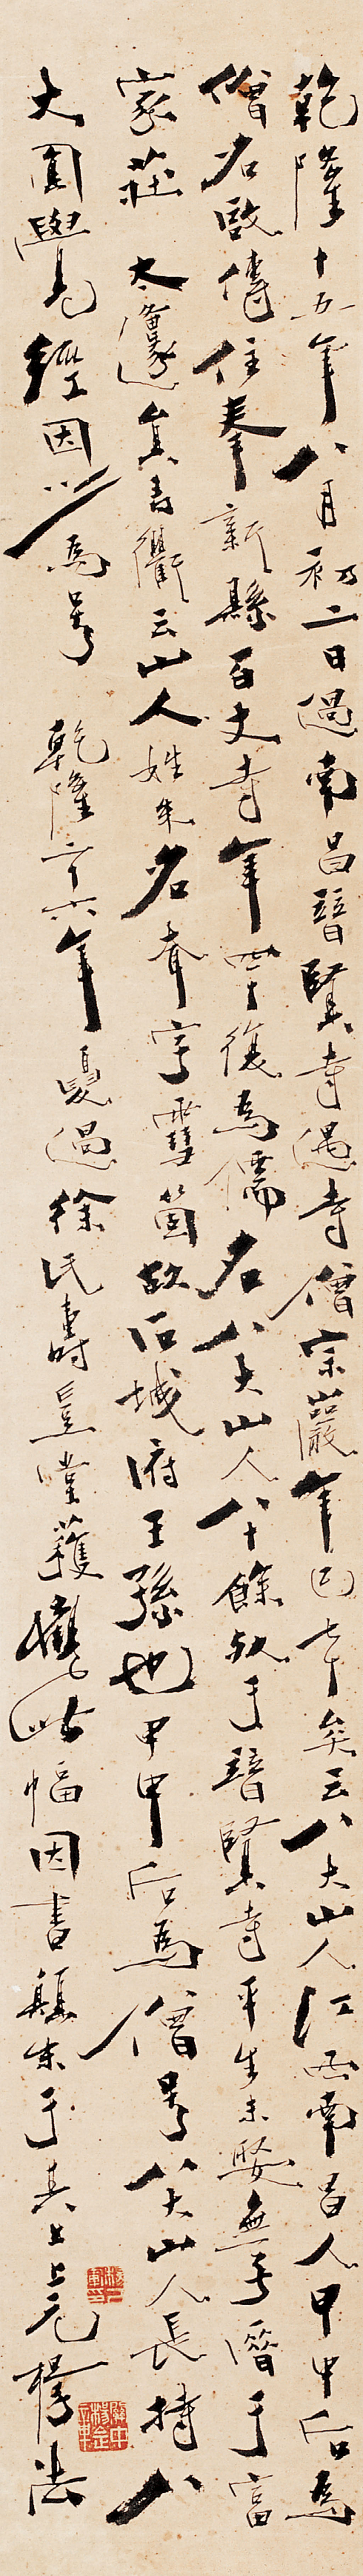 乾隆十五年八月初二日過南昌普賢寺遇寺僧宗巖年已七十矣云八大山人江西南昌人甲申后為
僧名啟傳住奉新縣百丈寺年四十復為儒名八大山人八十餘故于普賢寺平生未娶無子厝于富
家莊 太邊矣書衢云山人姓朱名耷字雪箇故石城府王孫也甲申后為僧號八大山人長持八
大圓覺經因以為號 乾隆二十六年夏過徐氏壽豈堂獲觀此幅因書顛末于其上上元楊法